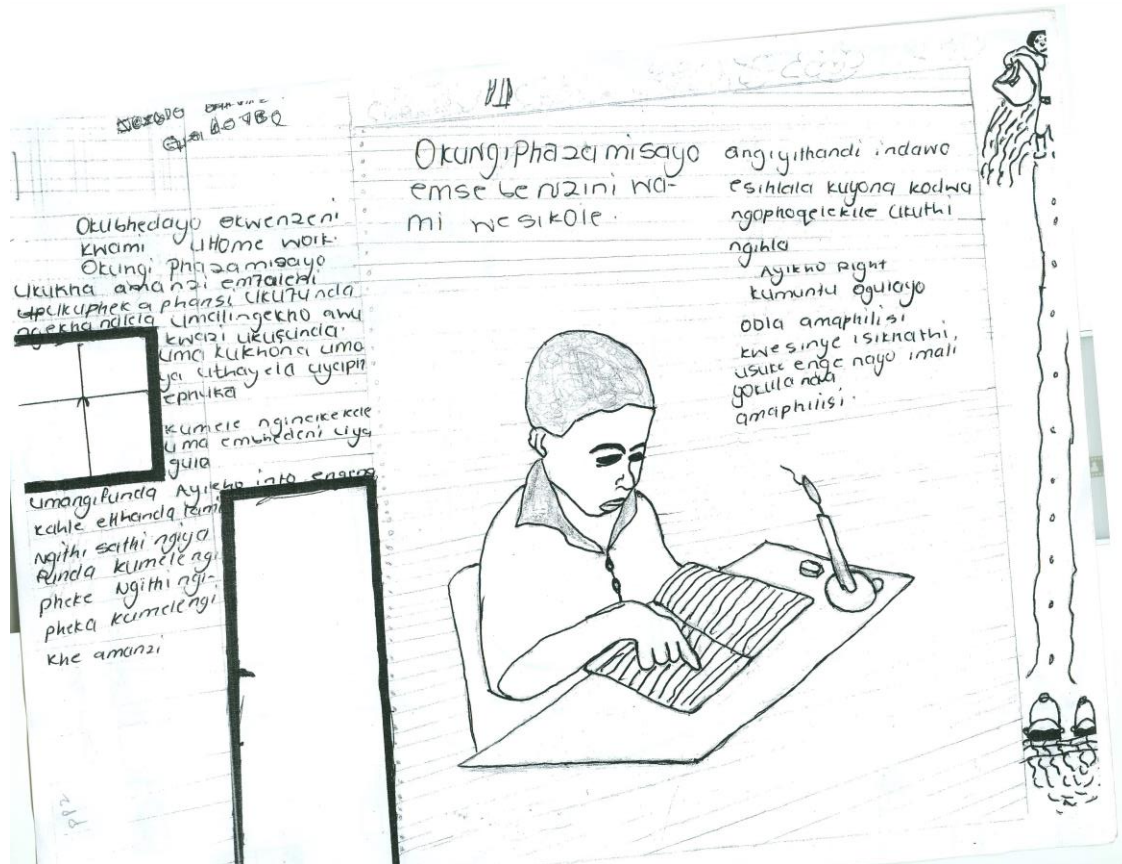 Okubhedayo ekwenzeni
kwami uHome work.
Okungi phazamisayo
ukukha amanzi emfuleni
phansi ukufunda
ngekhandlela umalingekho awu
kwazi ukufunda.
uma kukhona umo
ya uthayela uyaph
ephuka
kumele nginakekele
uma embhedeni uya
gula
umangifunda Ayikho into engena
kahle ekhanda lami
Ngithi sathi ngiya
funda kumelengi
pheke Ngithi ngi-
pheka kumelengi
khe amanzi
Okungiphazamisayo
emsebenzini wa-
mi wesikole.
angiyithandi indawo
esihlala kuyona kodwa
ngophoqelekile ukuthi
ngihla
Ayikho right
kumuntu ogulayo
odla amaphilisi
kwesinye isikhathi,
usuke enge nayo imali
yokulanda
amaphilisi.